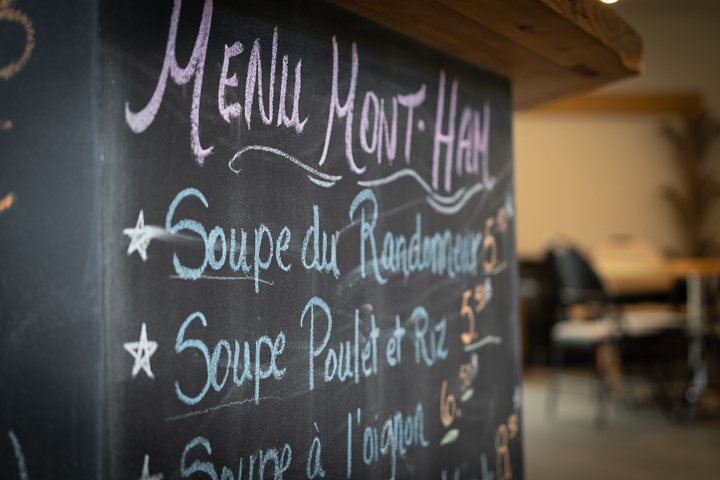 Menu Mont-Ham
Soupe du Randonneur
Soupe Poulet et Riz
Soupe à l'oignon